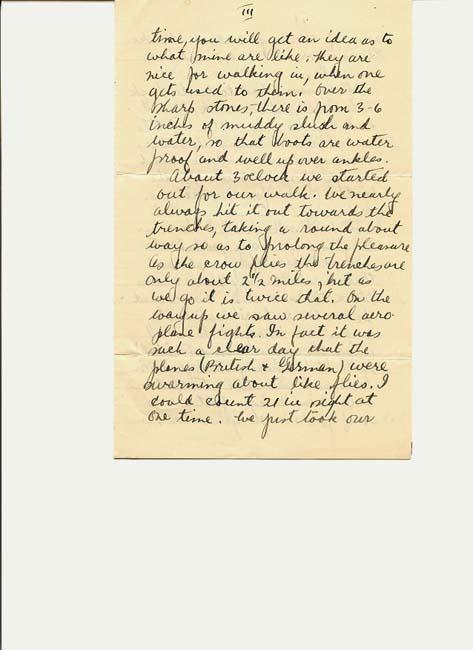 III
time, you will get an idea as to
what mine are like; they are
nice for walking in, when one
gets used to them. Over the
sharp stones, there is from 3-6
inches of muddy slush and
water, so that boots are water
proof and well up over ankles.
About 3 oclock we started
out for our walk. We nearly
always hit it out towards the
trenches, taking a round about
way so as to prolong the pleasure
as the crow flies the trenches are
only about 2 1/2 miles, but as
we go it is twice that. On the
way up we saw several aero-
plane fights. In fact it was
such a clear day that the
planes (British & German) were
swarming about like flies. I
could count 21 in sight at
one time. We just took our